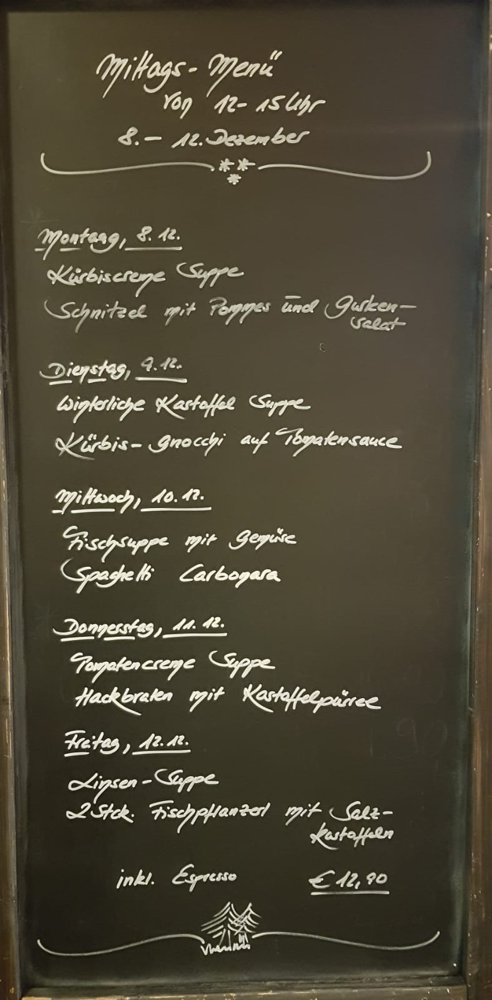 Mittags-Menü
von 12-15 Uhr
8.- 12. Dezember
Montag, 8.12.
Kürbiscreme Suppe
Schnitzel mit Pommes und Gurken-
salat
Dienstag, 9.12.
Winterliche Kartoffel Suppe
Kürbis-Gnocchi auf Tomatensauce
Mittwoch, 10.12.
Fischsuppe mit Gemüse
Spaghetti Carbonara
Donnerstag, 11.12.
Tomatencreme Suppe
Hackbraten mit Kartoffelpürree
Freitag, 12.12.
Linsen-Suppe
2 Stck. Fischpflanzerl mit Salz-
kartoffeln
inkl. Espresso € 12,90